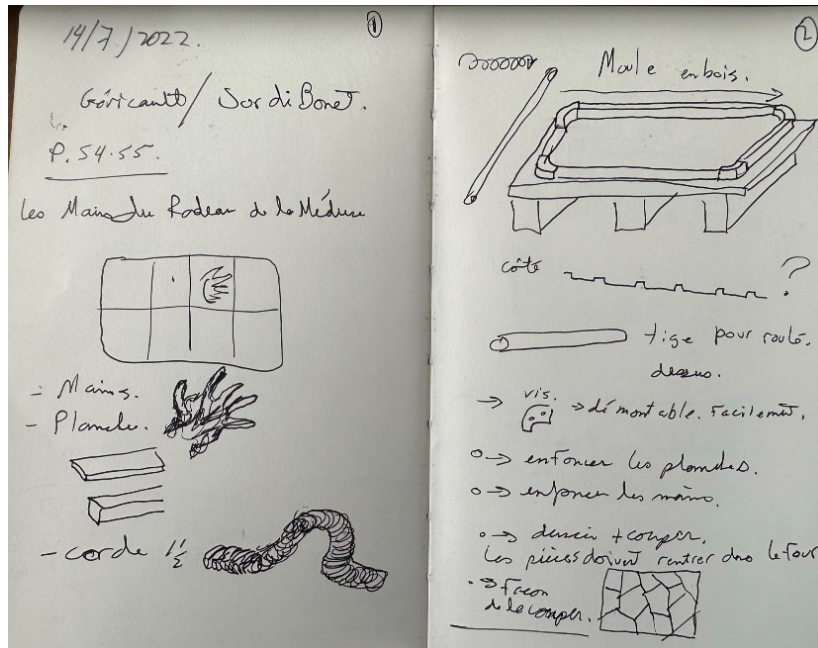 14/7/2022.
①
Géricault/ Jordi Bonet.
P. 54-55.
Les Mains du Radeau de la Méduse
- Mains.
- Planche.
- corde 1½
②
Moule en bois.
côté ?
tige pour roulé.
dessus.
→ vis. → démontable. Facilement.
→ enfoncer les planches.
→ enfoncer les mains.
→ dessin + couper.
Les pièces doivent rentrer dans le four
→ Façon
de le couper.